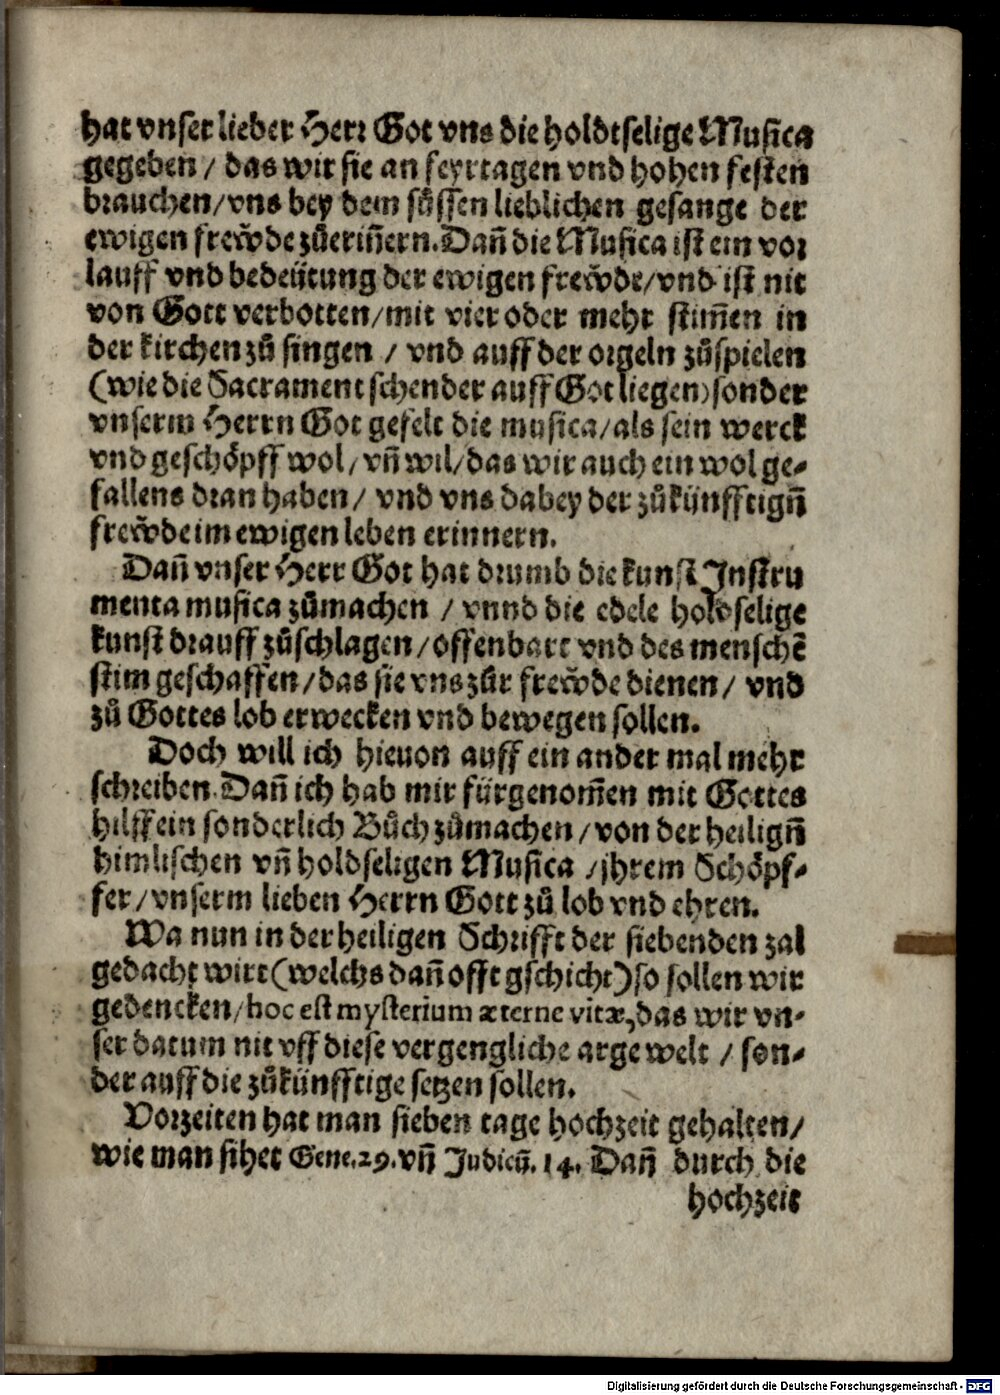 hat vnser lieber Herr Got vns die holdtselige Musica
gegeben / das wir sie an feyrtagen vnd hohen festen
brauchen/vns bey dem süssen lieblichen gesange der
ewigen frewͤde zůeriñern. Dañ die Musica ist ein vor
lauff vnd bedeütung der ewigen frewͤde/vnd ist nit
von Gott verbotten/mit vier oder mehr stim̃en in
der kirchen zů singen / vnd auff der orgeln zůspielen
(wie die Sacrament schender auff Got liegen) sonder
vnserm Herrn Got gefelt die musica/als sein werck
vnd geschöpff wol/vñ wil/das wir auch ein wol ge-
fallens dran haben/ vnd vns dabey der zůkünfftigñ
frewͤde im ewigen leben erinnern.
Dañ vnser Herr Got hat drumb die kunst Instru
menta musica zůmachen / vnnd die edele holdselige
kunst drauff zůschlagen/offenbart vnd des menschẽ
stim geschaffen/das sie vns zůr frewͤde dienen/ vnd
zů Gottes lob erwecken vnd bewegen sollen.
Doch will ich hieuon auff ein ander mal mehr
schreiben. Dañ ich hab mir fürgenom̃en mit Gottes
hilff ein sonderlich Bůch zůmachen/von der heiligñ
himlischen vñ holdseligen Musica /jhrem Schöpf-
fer/vnserm lieben Herrn Gott zů lob vnd ehren.
Wa nun in der heiligen Schrifft der siebenden zal
gedacht wirt (welchs dañ offt gschicht) so sollen wir
gedencken/hoc est mysterium æterne vitæ, das wir vn-
ser datum nit vff diese vergengliche arge welt / son-
der auff die zůkünfftige setzen sollen.
Vorzeiten hat man sieben tage hochzeit gehalten/
wie man sihet Gene.29.vñ Judicũ. 14. Dañ durch die
hochzeit
Digitalisierung gefördert durch die Deutsche Forschungsgemeinschaft - DFG